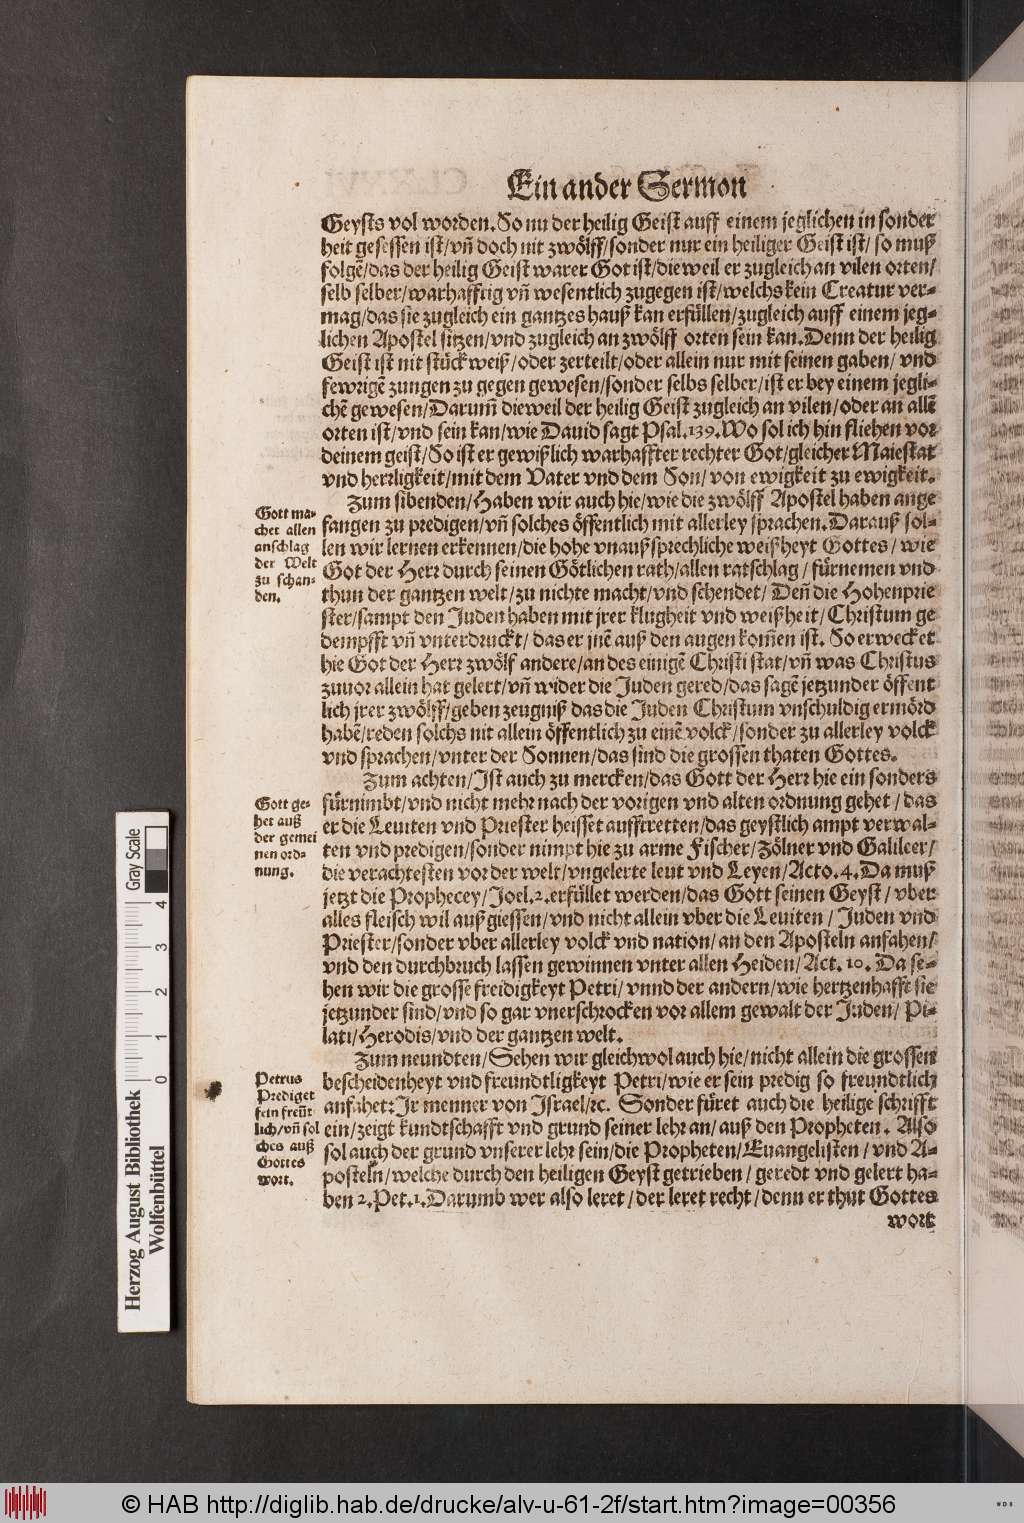 Ein ander Sermon
Geysts vol worden. So nu der heilig Geist auff einem jeglichen in sonder
heit gesessen ist/ vñ doch nit zwölff/ sonder nur ein heiliger Geist ist/ so muß
folgẽ/ das der heilig Geist warer Got ist/ dieweil er zugleich an vilen orten/
selb selber/ warhafftig vñ wesentlich zugegen ist/ welchs kein Creatur ver-
mag/ das sie zugleich ein gantzes hauß kan erfüllen/ zugleich auff einem jeg-
lichen Apostel sitzen/ vnd zugleich an zwölff orten sein kan. Denn der heilig
Geist ist nit stückweiß/ oder zerteilt/ oder allein nur mit seinen gaben/ vnd
fewrigẽ zungen zu gegen gewesen/ sonder selbs selber/ ist er bey einem jegli-
chẽ gewesen/ Darum̃ dieweil der heilig Geist zugleich an vilen/ oder an allẽ
orten ist/ vnd sein kan/ wie Dauid sagt Psal. 139. Wo sol ich hin fliehen vor
deinem geist/ So ist er gewißlich warhaffter rechter Got/ gleicher Maiestat
vnd herrligkeit/ mit dem Vater vnd dem Son/ von ewigkeit zu ewigkeit.
Zum sibenden/ Haben wir auch hie/ wie die zwölff Apostel haben ange
Gott ma-
chet allen
anschlag
der Welt
zu schan-
den.
fangen zu predigen/ vñ solches öffentlich mit allerley sprachen. Darauß sol-
len wir lernen erkennen/ die hohe vnaußsprechliche weißheyt Gottes/ wie
Got der Herr durch seinen Götlichen rath/ allen ratschlag/ fürnemen vnd
thun der gantzen welt/ zu nichte macht/ vnd schendet/ Deñ die Hohenprie
ster/ sampt den Juden haben mit jrer klugheit vnd weißheit/ Christum ge
dempfft vñ vnterdruckt/ das er jnẽ auß den augen kom̃en ist. So erwecket
hie Got der Herr zwölf andere/ an des einigẽ Christi stat/ vñ was Christus
zuuor allein hat gelert/ vñ wider die Juden gered/ das sagẽ jetzunder öffent
lich jrer zwölff/ geben zeugniß das die Juden Christum vnschuldig ermörd
habẽ/ reden solchs nit allein öffentlich zu einẽ volck/ sonder zu allerley volck
vnd sprachen/ vnter der Sonnen/ das sind die grossen thaten Gottes.
Zum achten/ Jst auch zu mercken/ das Gott der Herr hie ein sonders
Gott ge-
het auß
der gemei
nen ord-
nung.
fürnimbt/ vnd nicht mehr nach der vorigen vnd alten ordnung gehet/ das
er die Leuiten vnd Priester heisset aufftretten/ das geystlich ampt verwal-
ten vnd predigen/ sonder nimpt hie zu arme Fischer/ Zölner vnd Galileer/
die verachtesten vor der welt/ vngelerte leut vnd Leyen/ Acto. 4. Da muß
jetzt die Prophecey/ Joel. 2. erfüllet werden/ das Gott seinen Geyst/ vber
alles fleisch wil außgiessen/ vnd nicht allein vber die Leuiten/ Juden vnd
Priester/ sonder vber allerley volck vnd nation/ an den Aposteln anfahen/
vnd den durchbruch lassen gewinnen vnter allen Heiden/ Act. 10. Da se-
hen wir die grossẽ freidigkeyt Petri/ vnnd der andern/ wie hertzenhafft sie
jetzunder sind/ vnd so gar vnerschrocken vor allem gewalt der Juden/ Pi-
lati/ Herodis/ vnd der gantzen welt.
Zum neundten/ Sehen wir gleichwol auch hie/ nicht allein die grossen
Petrus
Prediget
fein freũt
lich/ vñ sol
ches auß
Gottes
wort.
bescheidenheyt vnd freundtligkeyt Petri/ wie er sein predig so freundtlich
anfahet: Jr menner von Israel/ ꝛc. Sonder füret auch die heilige schrifft
ein/ zeigt kundtschafft vnd grund seiner lehr an/ auß den Propheten. Also
sol auch der grund vnserer lehr sein/ die Propheten/ Euangelisten/ vnd A-
posteln/ welche durch den heiligen Geyst getrieben/ geredt vnd gelert ha-
ben 2. Pet. 1. Darumb wer also leret/ der leret recht/ denn er thut Gottes
wort
Herzog August Bibliothek
Wolfenbüttel
0 1 2 3 4
Gray Scale
© HAB http://diglib.hab.de/drucke/alv-u-61-2f/start.htm?image=00356
WDB